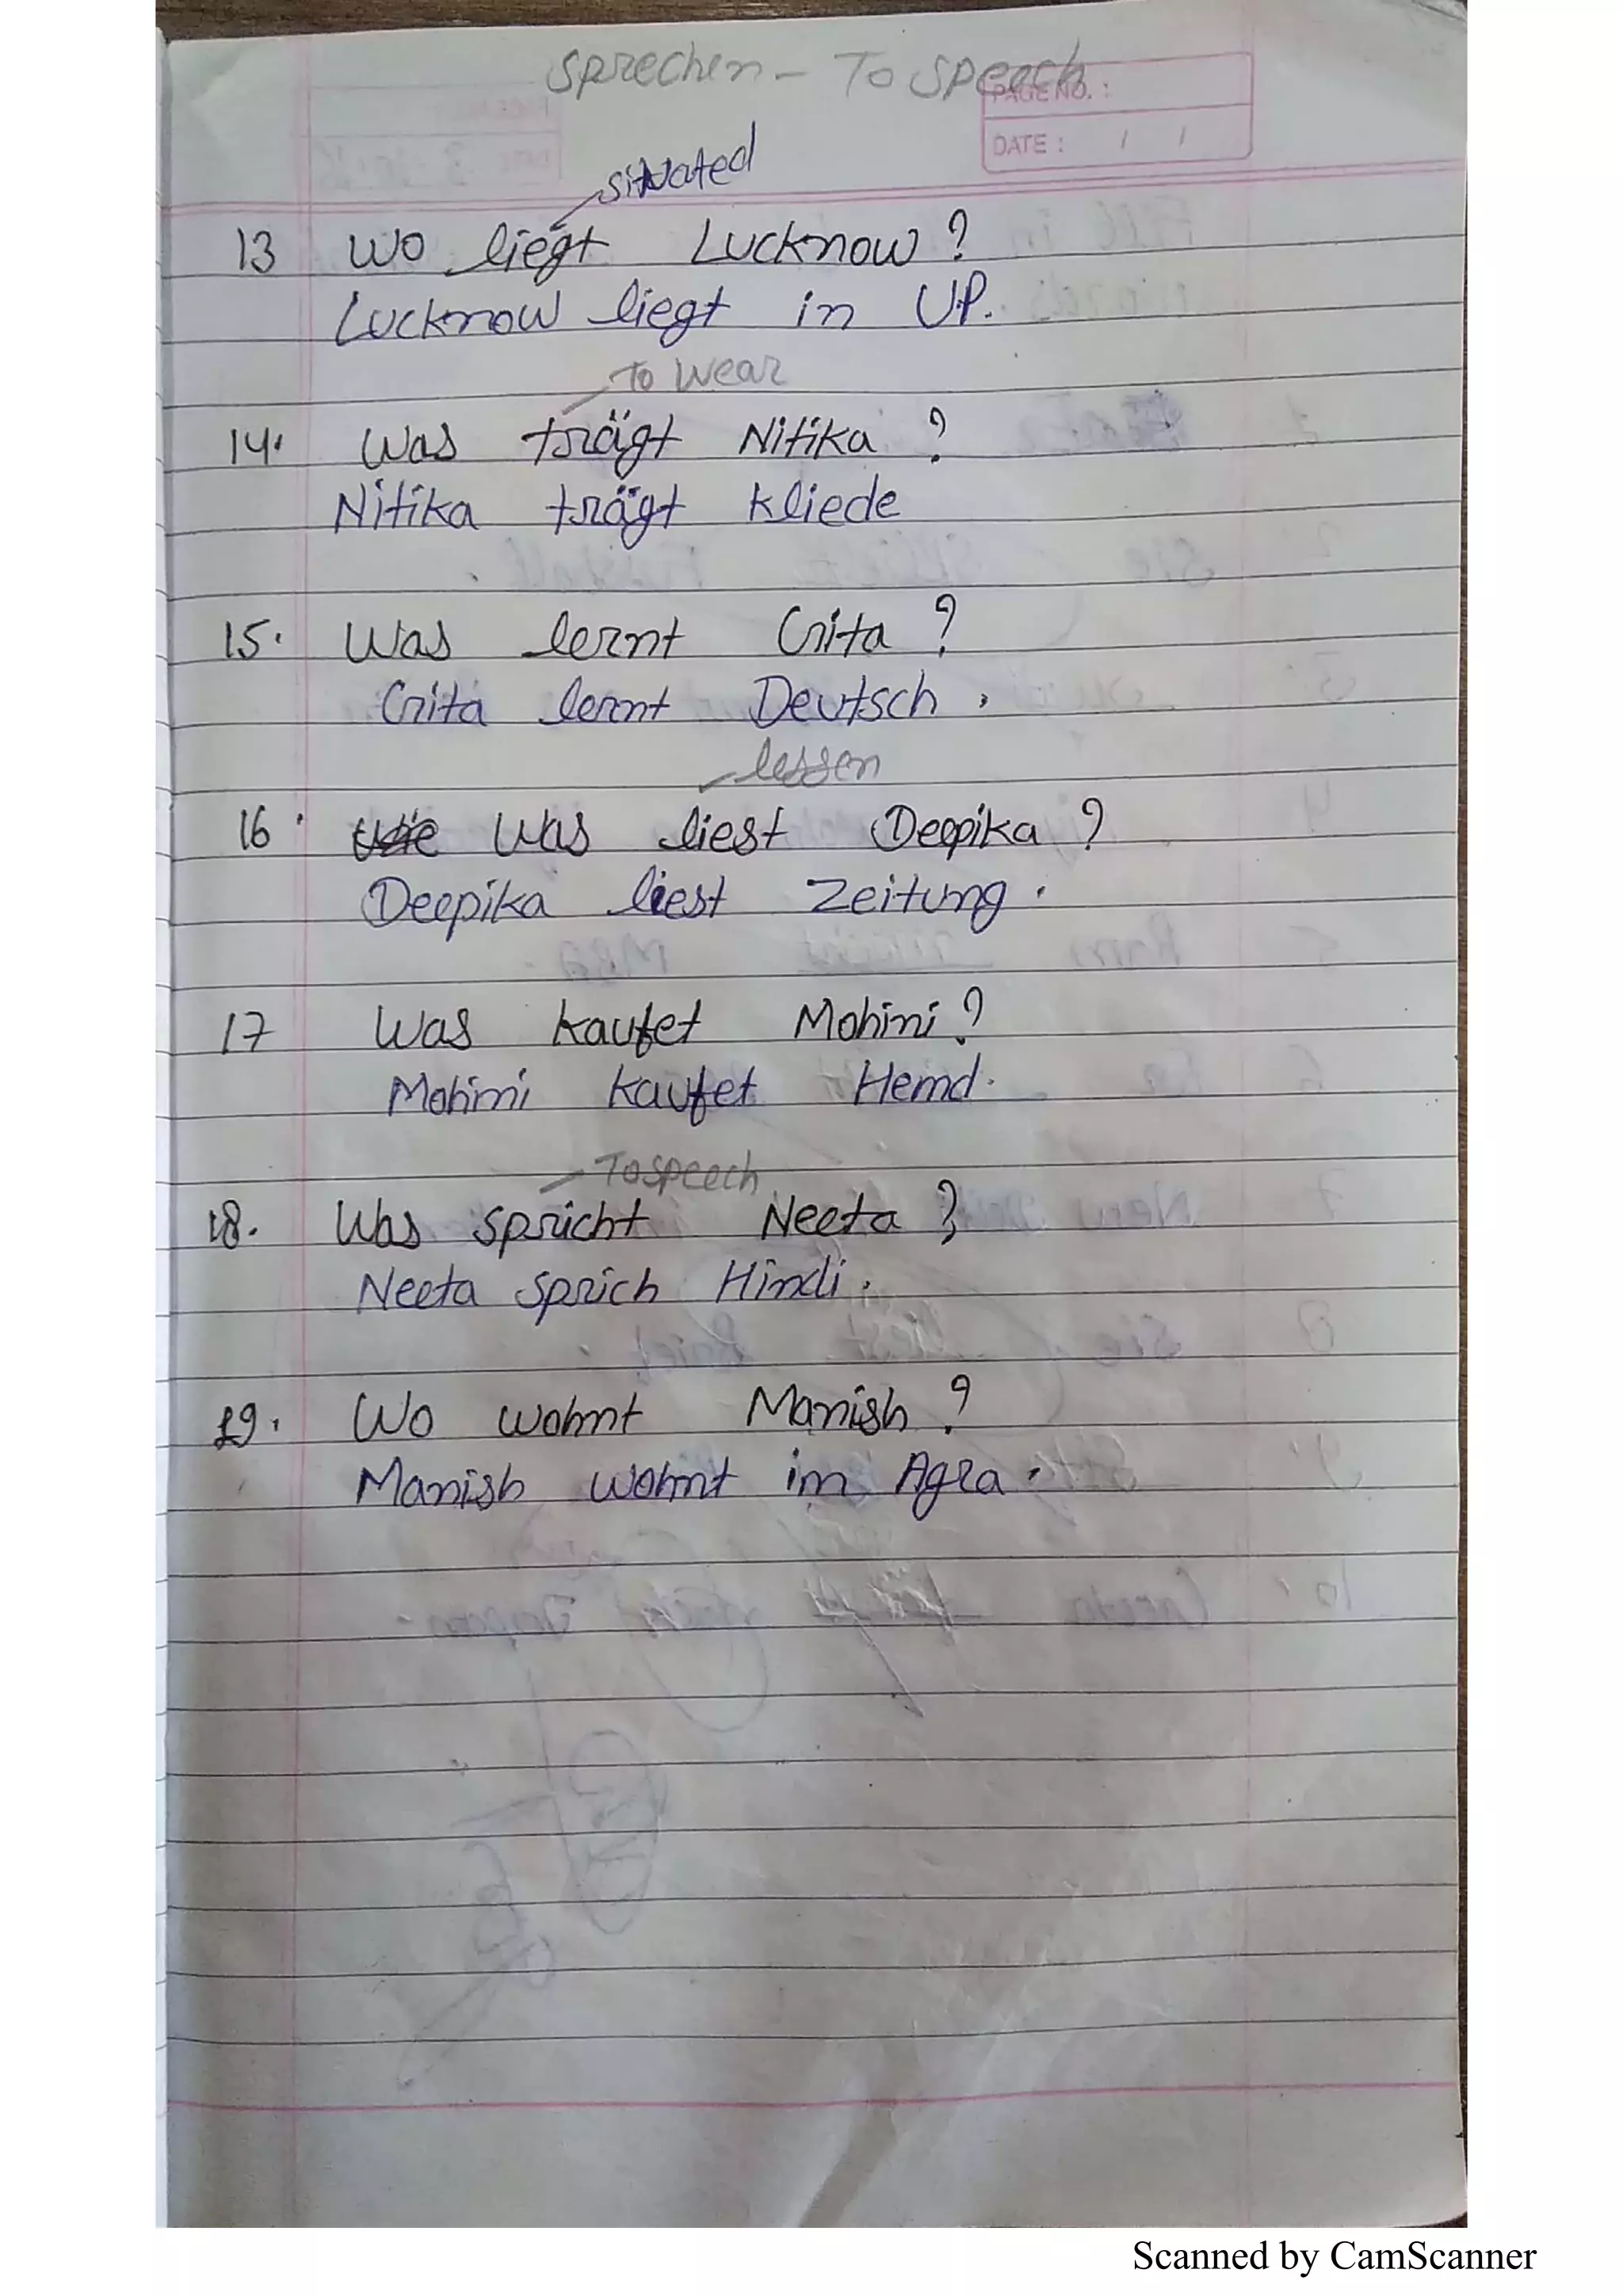 Sprechen - To Speech
PAGE NO. :
DATE : / /
situated
13 Wo liegt Lucknow ?
Lucknow liegt in UP.
To Wear
14. Was trägt Nitika ?
Nitika trägt Kliede
15. Was lernt Grita ?
Grita lernt Deutsch .
lessen
16. Was liest Deepika ?
Deepika liest Zeitung .
17 Was kaufet Mohini ?
Mohini kaufet Hemd.
To speech
18. Was spricht Neeta ?
Neeta Sprich Hindi .
19. Wo wohnt Manish ?
Manish wohnt in Agra .
Scanned by CamScanner